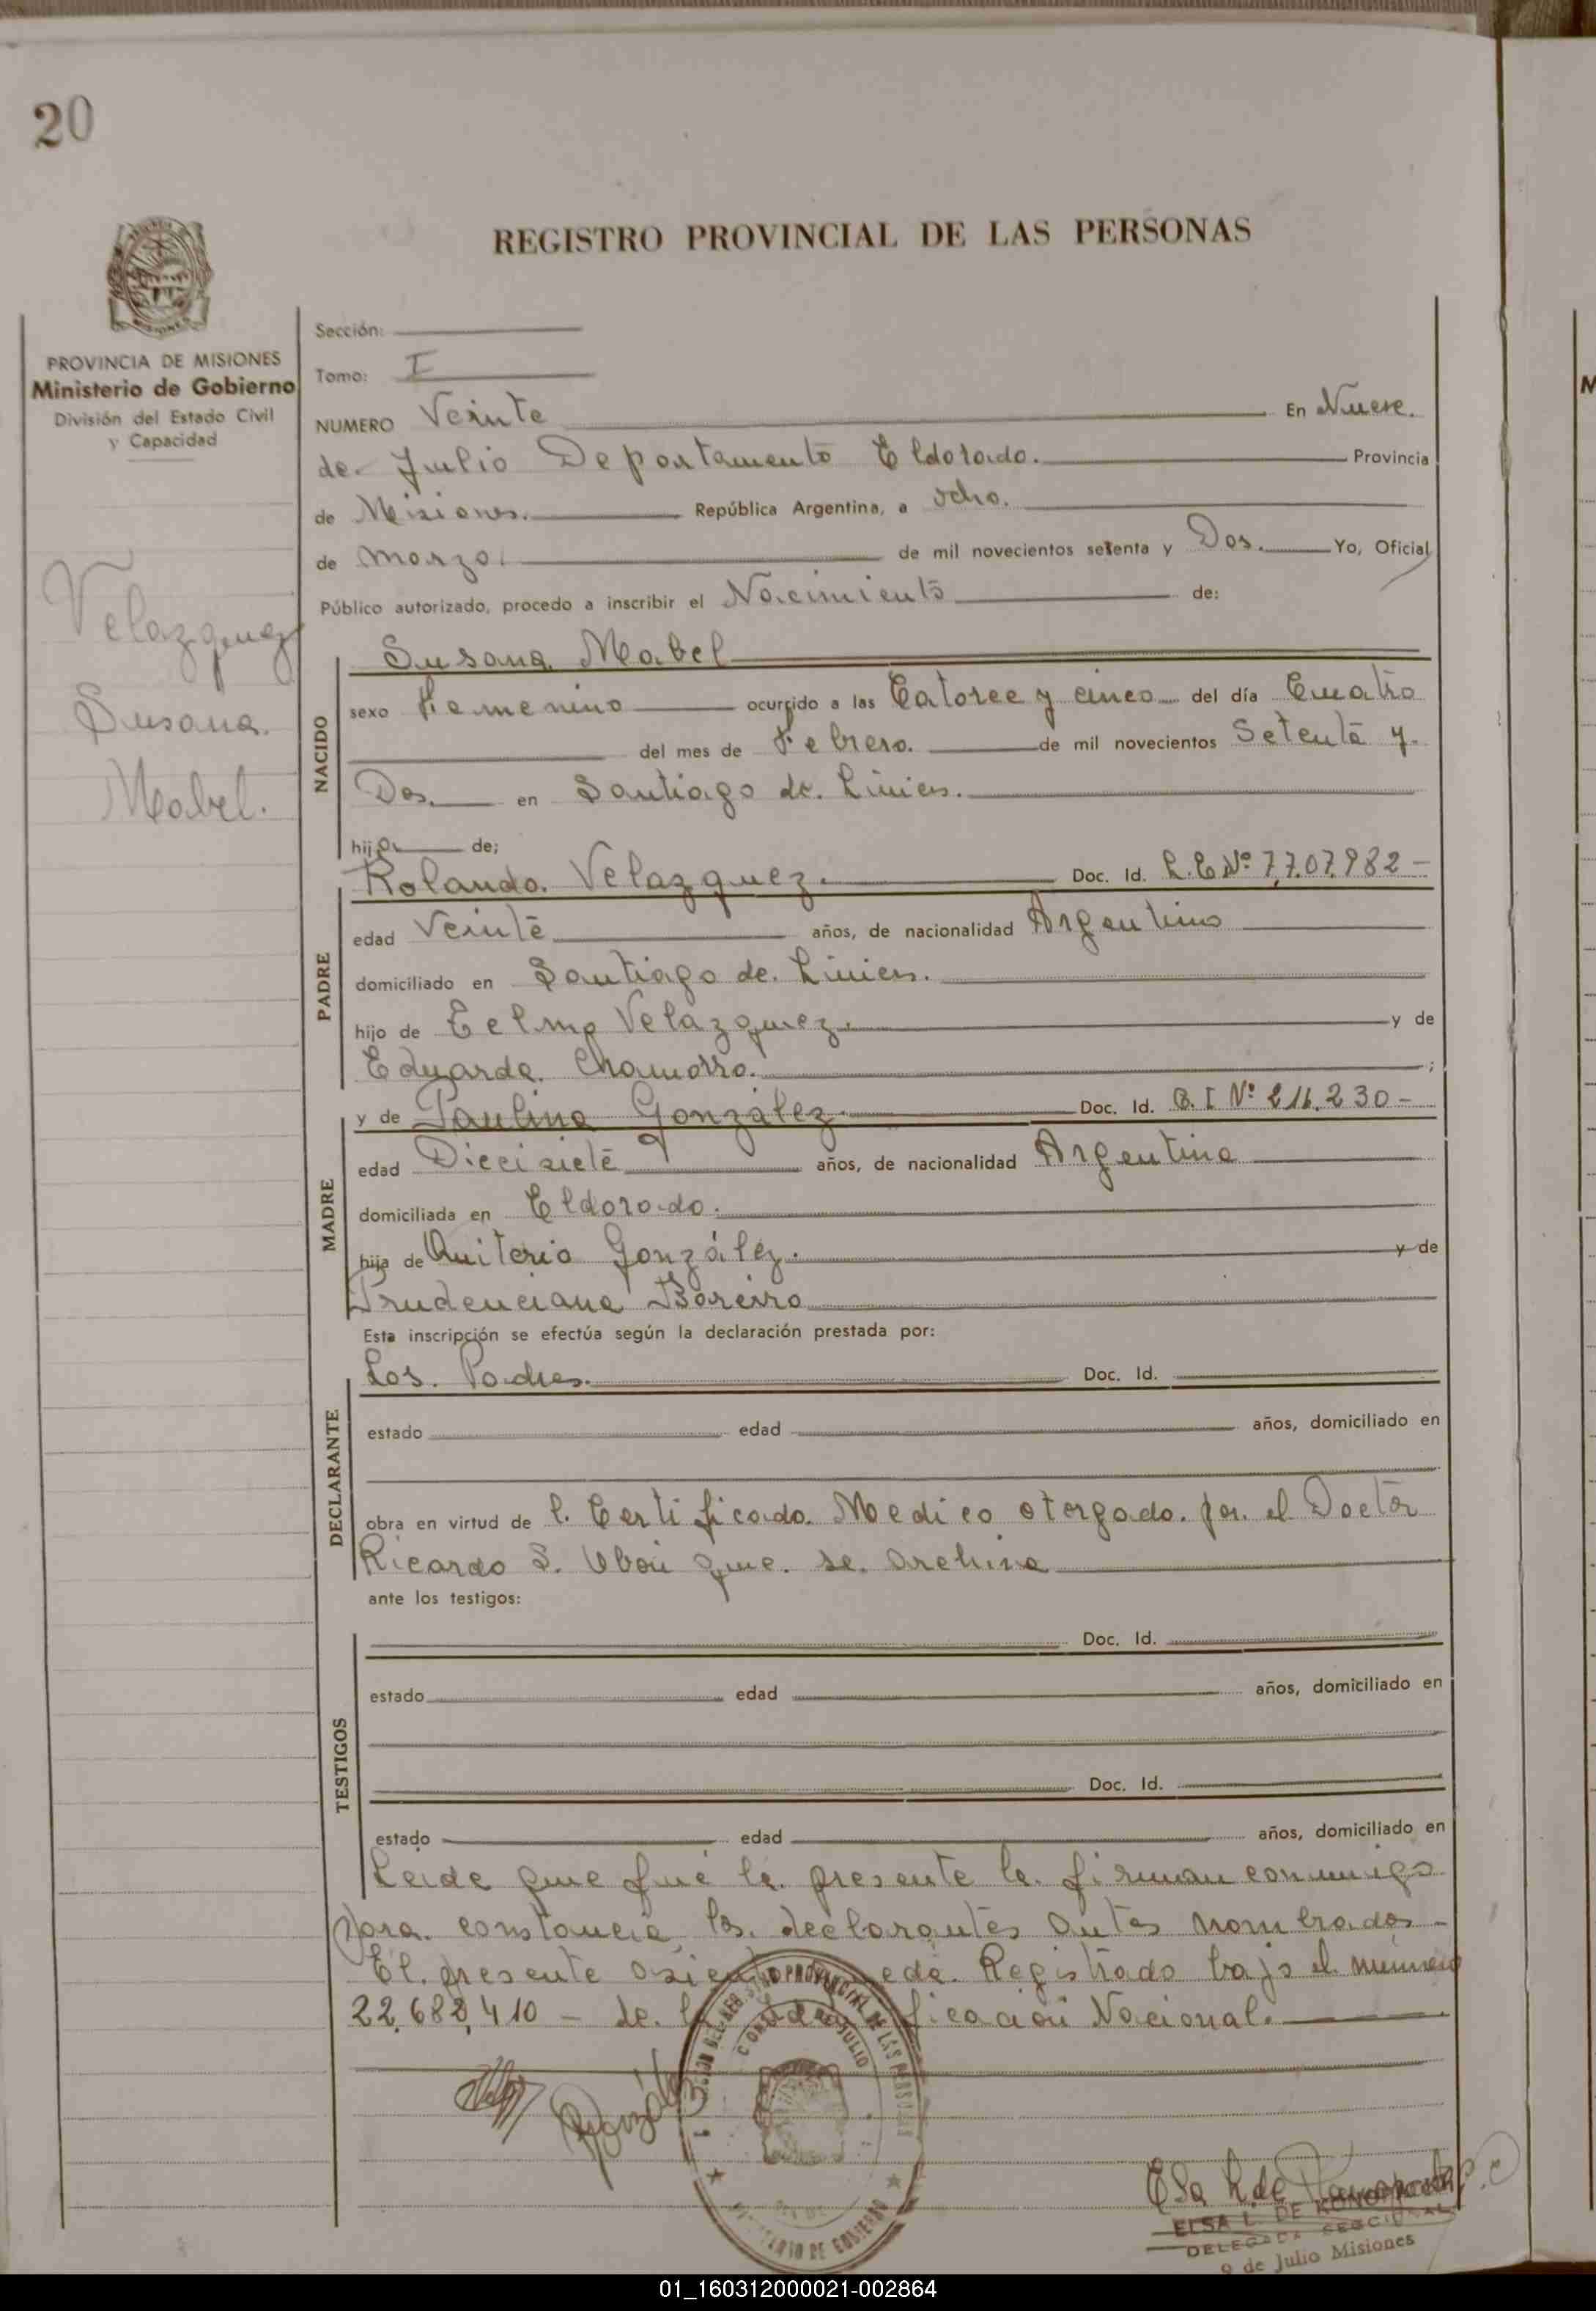 20
REGISTRO PROVINCIAL DE LAS PERSONAS
PROVINCIA DE MISIONES
Ministerio de Gobierno
División del Estado Civil
y Capacidad
Velazquez
Susana.
Mabel.
Sección:
Tomo: I
NUMERO Veinte En Nueve.
de Julio Departamento Eldorado. Provincia
de Misiones. República Argentina, a ocho.
de marzo. de mil novecientos setenta y Dos. Yo, Oficial
Público autorizado, procedo a inscribir el Nacimiento de:
NACIDO
Susana Mabel
sexo Femenino ocurrido a las Catorce y cinco del día Cuatro
del mes de Febrero. de mil novecientos Setenta y.
Dos. en Santiago de. Liniers.
hija de;
PADRE
Rolando. Velazquez. Doc. Id. L.E Nº 7,707,982-
edad Veinte años, de nacionalidad Argentino
domiciliado en Santiago de. Liniers.
hijo de Telmo Velazquez. y de
Eduarda. Chamorro. ;
MADRE
y de Paulina González. Doc. Id. C.I Nº 216.230-
edad Diecisiete años, de nacionalidad Argentina
domiciliada en Eldorado.
hija de Quiterio González. y de
Prudenciana Boreiro
Esta inscripción se efectúa según la declaración prestada por:
DECLARANTE
Los. Padres. Doc. Id.
estado edad años, domiciliado en
obra en virtud de l. Certificado. Medico otorgado. por. el Doctor
Ricardo S. que. se. archiva
ante los testigos:
TESTIGOS
Doc. Id.
estado edad años, domiciliado en
Doc. Id.
estado edad años, domiciliado en
Leida que fué la. presente la. firman conmigo
para. constancia, los. declarantes antes nombrados-
El. presente asiento queda. Registrado bajo el número
22,682,410- de. la Nacional.
González
MINISTERIO DE GOBIERNO
Elsa L. de
ELSA L. DE
DELEGADA SECCIONAL
9 de Julio Misiones
01_160312000021-002864